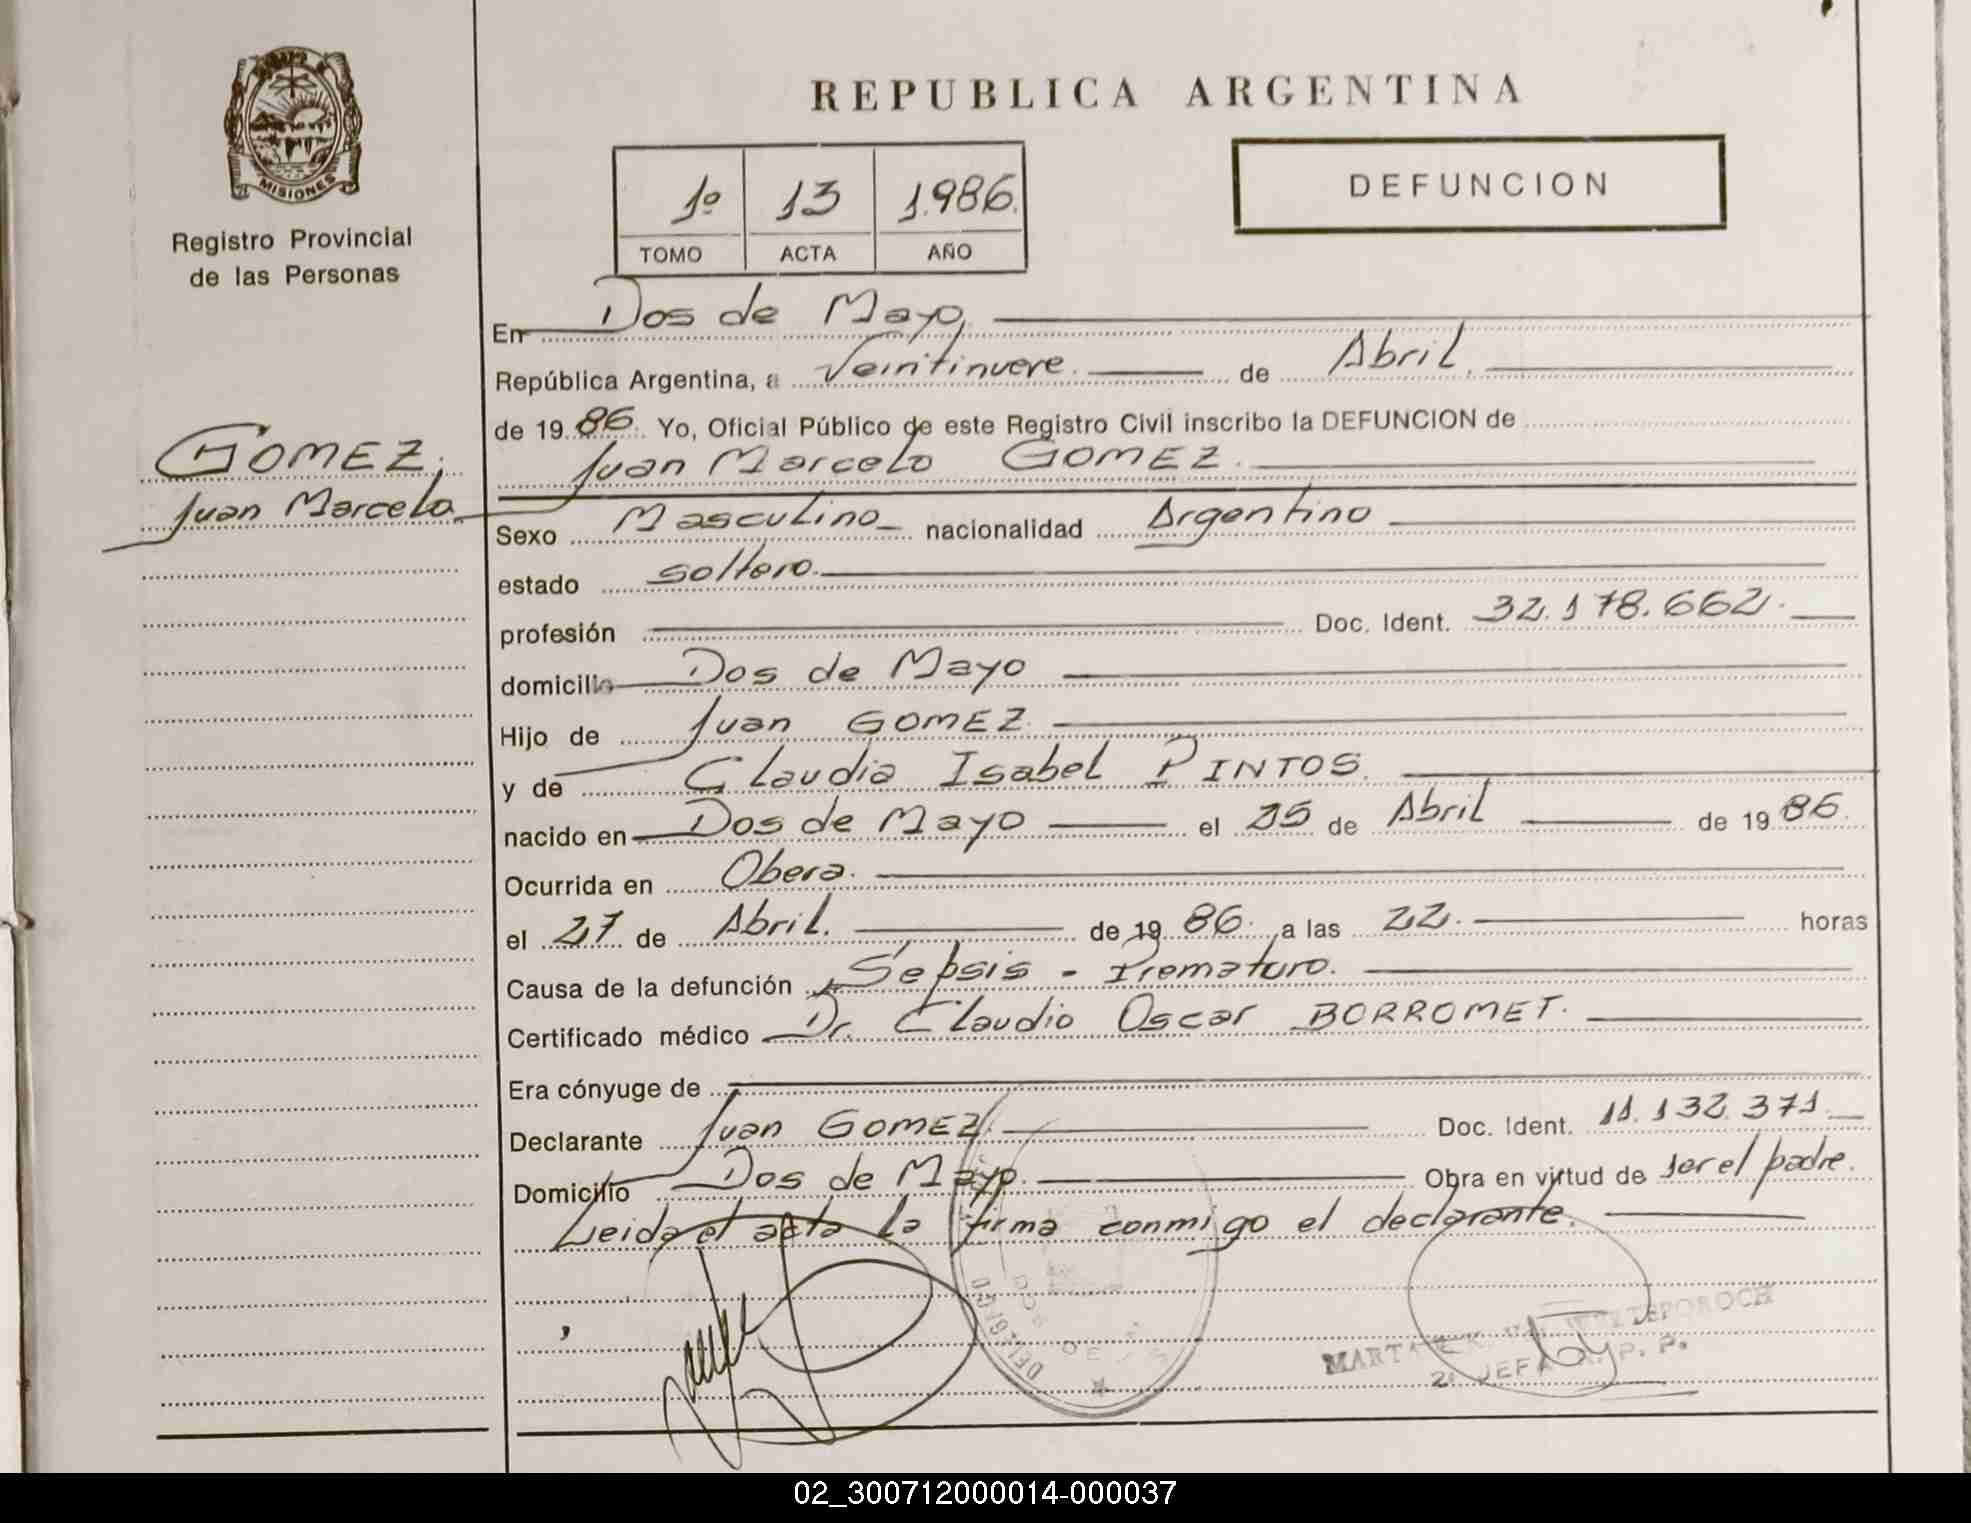 REPUBLICA ARGENTINA
MISIONES
Registro Provincial
de las Personas
1º 13 1.986.
TOMO ACTA AÑO
DEFUNCION
GOMEZ,
Juan Marcelo
En Dos de Mayo,
República Argentina, a Veintinueve. de Abril.
de 19 86. Yo, Oficial Público de este Registro Civil inscribo la DEFUNCION de
Juan Marcelo GOMEZ.
Sexo Masculino nacionalidad Argentino
estado soltero.
profesión Doc. Ident. 32.178.662.
domicilio Dos de Mayo
Hijo de Juan GOMEZ.
y de Claudia Isabel PINTOS.
nacido en Dos de Mayo el 25 de Abril de 19 86.
Ocurrida en Obera.
el 27 de Abril. de 19 86. a las 22. horas
Causa de la defunción Sepsis - Prematuro.
Certificado médico Dr. Claudio Oscar BORROMET.
Era cónyuge de
Declarante Juan GOMEZ. Doc. Ident. 11.132.371.
Domicilio Dos de Mayo. Obra en virtud de ser el padre.
Leida el acta la firma conmigo el declarante.
02_300712000014-000037